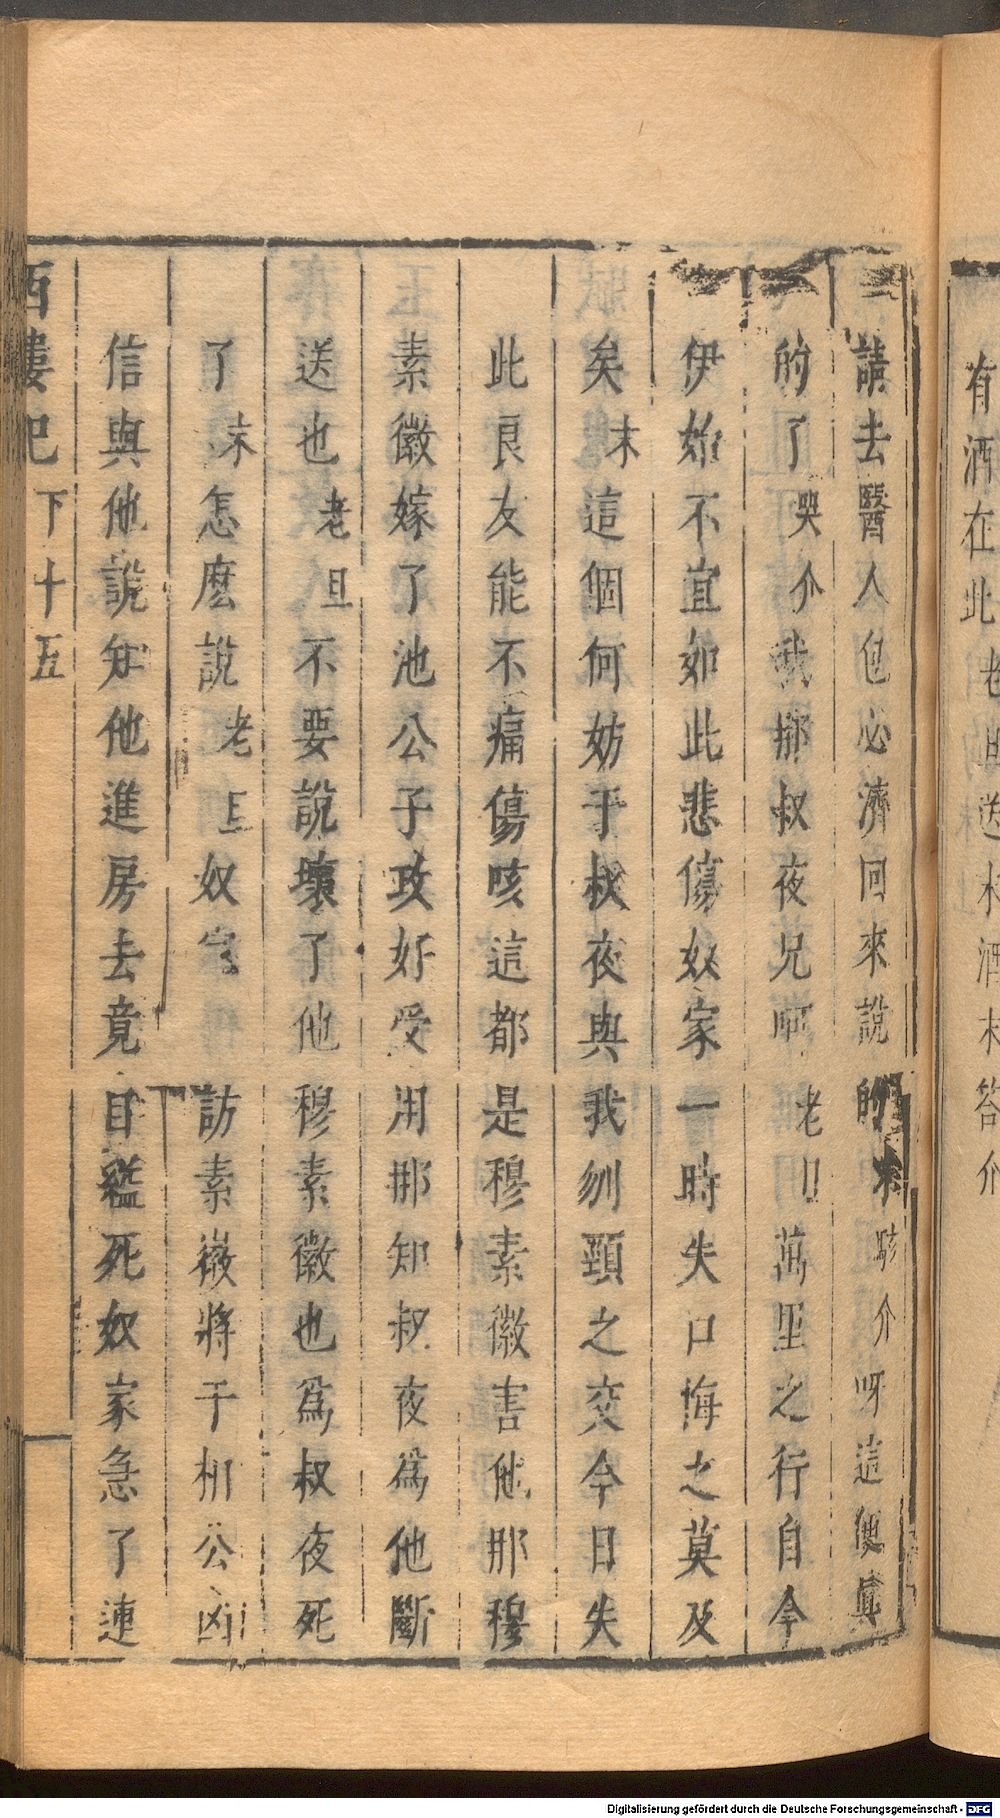 有酒在此老旦送末酒末答介
請去醫人包必濟回來說的末駭介呀這便眞
的了哭介我那叔夜兄呵老旦萬里之行自今
伊始不宜如此悲傷奴家一時失口悔之莫及
矣末這個何妨于叔夜與我刎頸之交今日失
此良友能不痛傷咳這都是穆素徽害他那穆
素徽嫁了池公子攻好受用那知叔夜爲他斷
送也老旦不要說壞了他穆素徽也爲叔夜死
了末怎麽說老旦奴家訪素徽將于相公凶
信與他說知他進房去竟自縊死奴家急了連
西樓記 下 十五
Digitalisierung gefördert durch die Deutsche Forschungsgemeinschaft - DFG